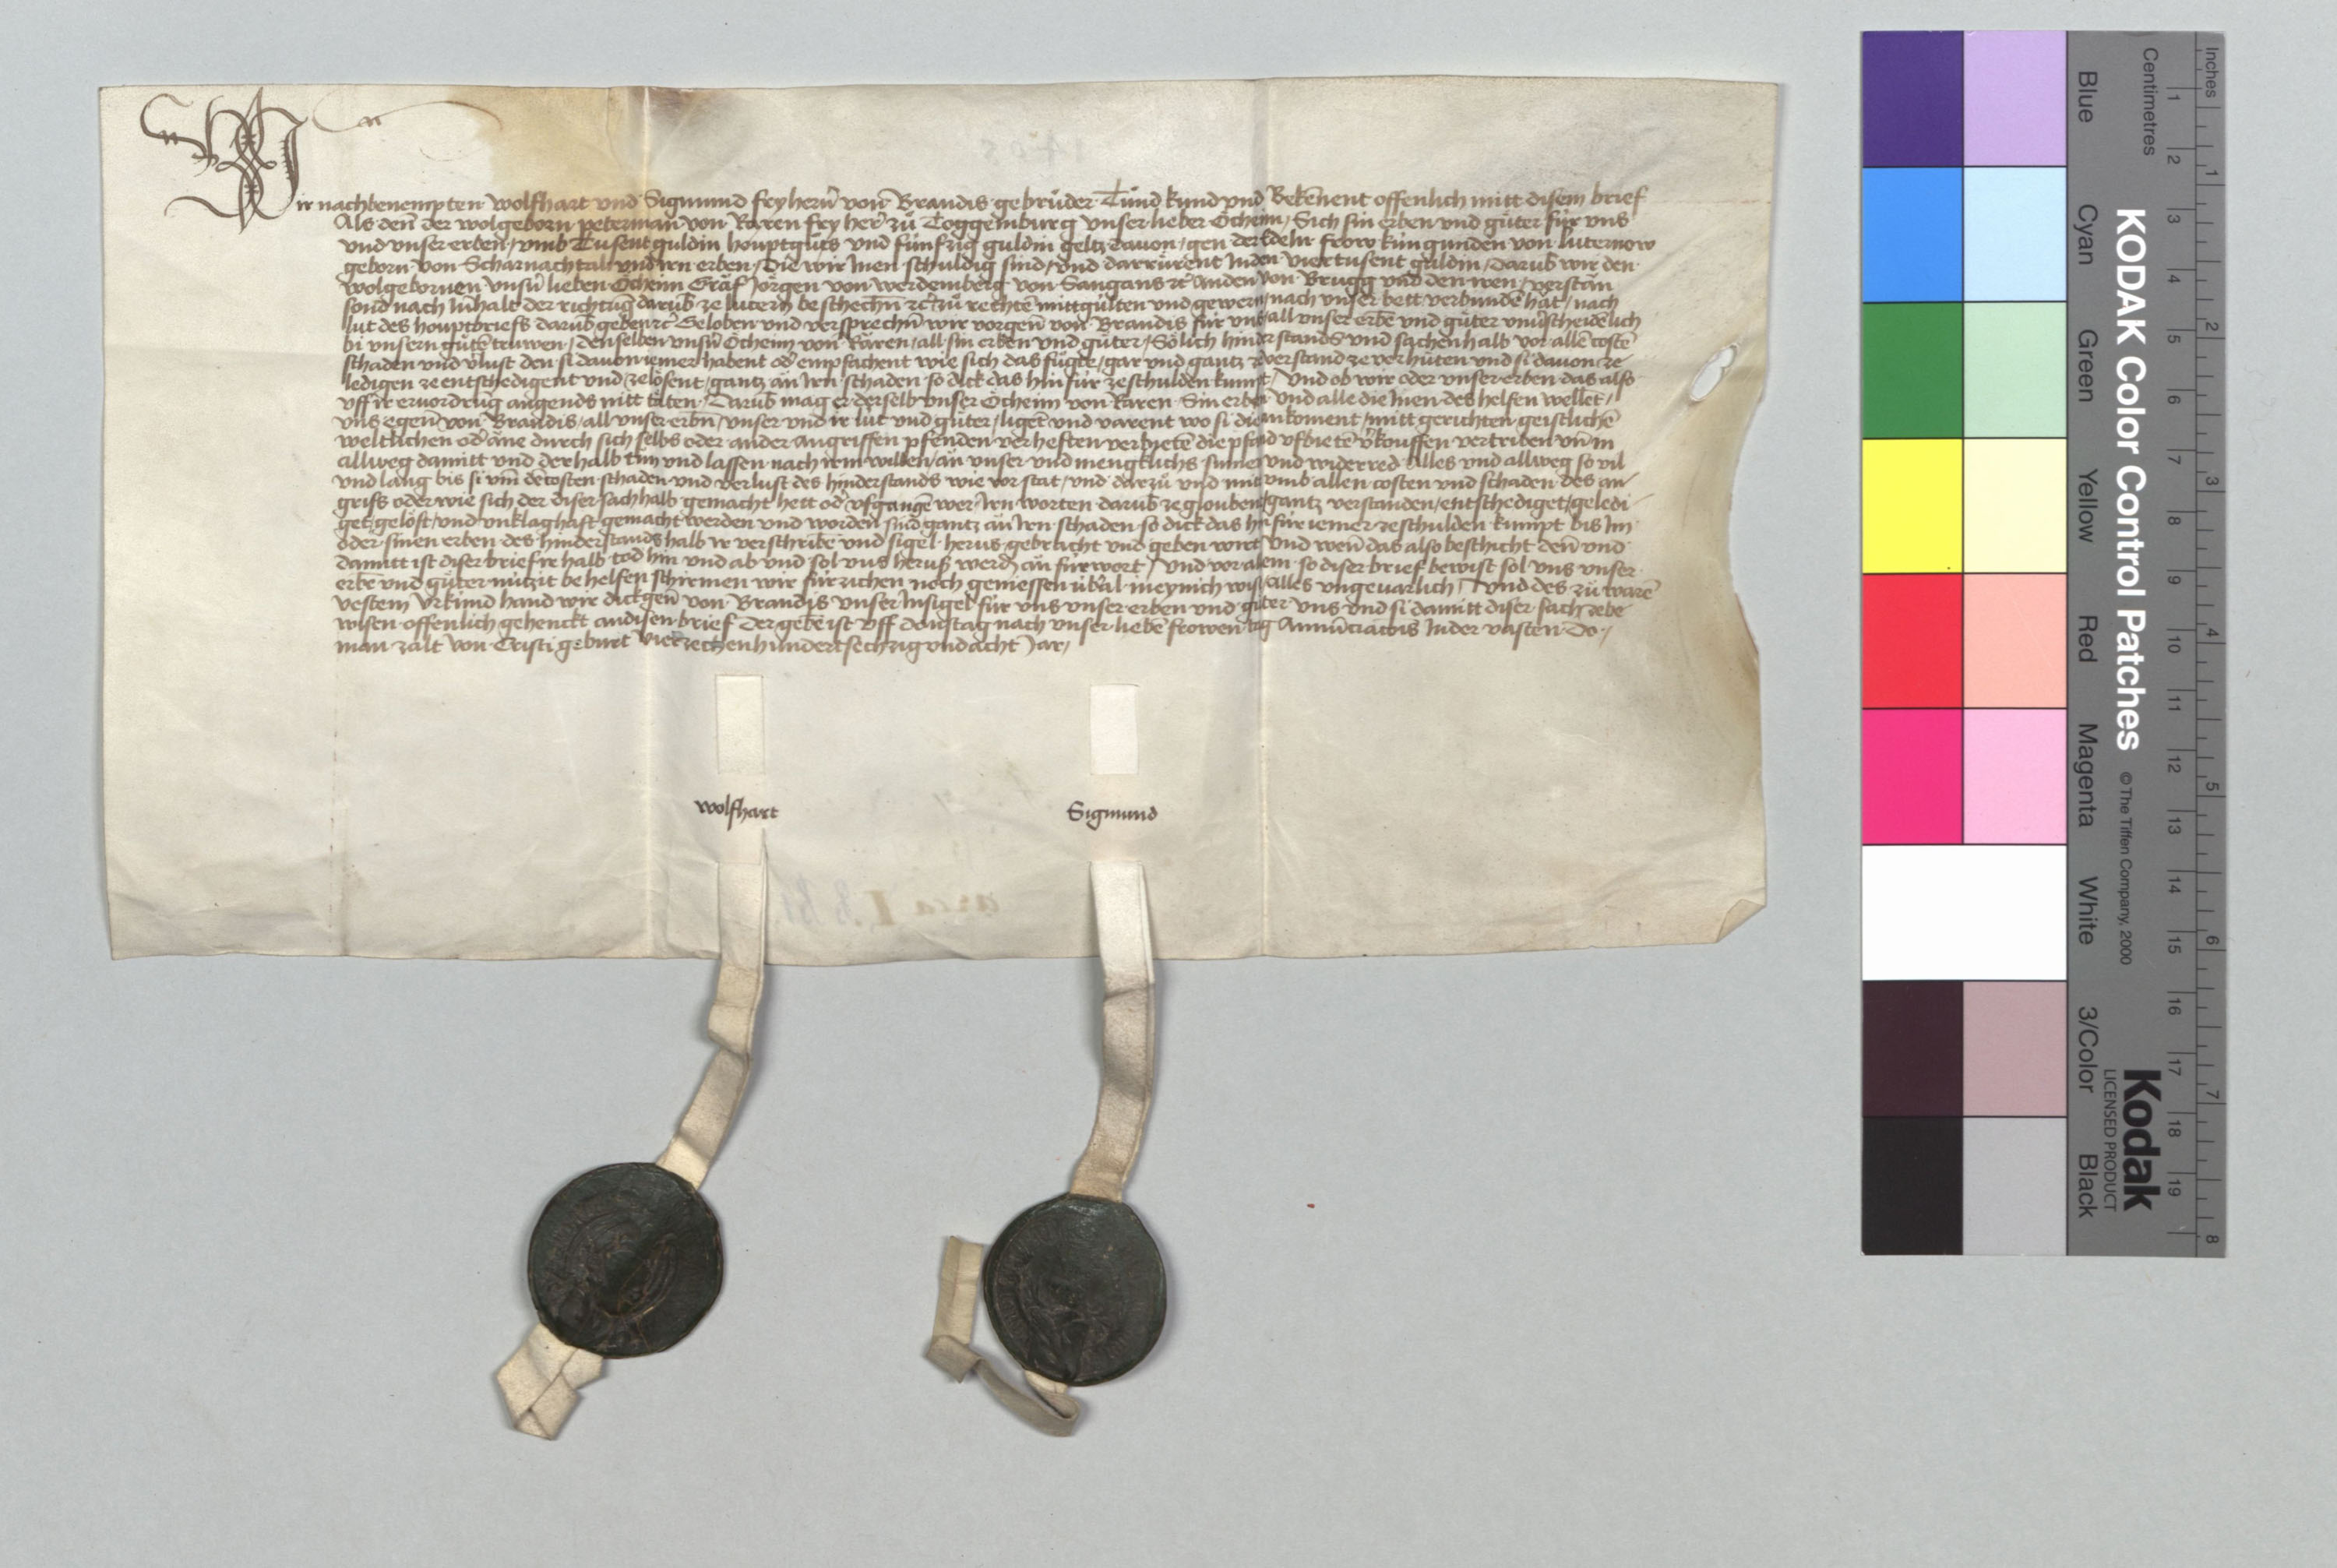 Wir nachbenempten wolfhart und Sigmund fryherñ von Brandis gebrůder Tůnd kund und Bekeñent offenlich mitt disem brief
Als deñ der wolgeborn petermañ von Raren fry her zů Toggemburg unser lieber Öcheim / Sich sin erben und gůter für uns
und unser erben / umb Tusent guldin houptgůts und fünfzig guldin geltz dauon / gen der Edeln frow küngunden von luternow
geborn von Scharnachtal und irn erben / Die wir Inen schuldig sind / und darrürent In den viertusent guldin / Darub wir den
wolgebornen unsñ lieben Öcheim Graf Jörgen von werdemberg von Sangans zc anden von Brugg und den iren / verstan
sond nach Inhalt der richtug darub ze lutern beschechñ zc zů rechte mittgülten und gewern / nach unser bett verbunde hat / nach
lut des houptbriefs darub geben zc Geloben und versprechñ wir vorgeñ von Brandis für uns all unser erbe und gůter unuscheidelich
bi unsern gůte truwen / denselben unsñ Öcheim von Raren / all sin erben und gůter / Sölich hinderstands und sachenhalb vor alle coste
schaden und vlust den si dauon iemer habent od empfachent wie sich das fůgte / gar und gantz ze verstand ze verhůten und si dauon ze
ledigen ze entschedigent und ze lösent / gantz än Irn schaden so dick das hinfür ze schulden kumpt / Und ob wir oder unser erben das also
uff ir eruordrug angends nitt täten / Darub mag er derselb unser Öcheim von Raren Sin erben und alle die Inen des helfen wellet /
uns egeñ von Brandis / all unser erbñ / unser und ir lüt und gůter / liget und varent wo si die ankoment / mitt gerichten geistliche
weltlichen od äne durch sich selbs oder ander angriffen pfenden verheften verbiete die pfand ufbiete vkouffen vertriben uñ in
allweg damitt und derhalb tun und lassen nach irm willen / än unser und mengklichs sumen und widerred Alles und allweg so vil
und lang bis si um de costen schaden und verlust des hinderstands wie vor stat / und darzů und mit umb allen costen und schaden des an
grifs oder wie sich der diser sach halb gemacht hett od ufgange wer Irn worten darub ze glouben / gantz verstanden / entschediget / geledi
get / gelöst / und unklaghaft gemacht werden und worden sind gantz än Irn schaden so dick das hinfür iemer ze schulden kumpt bis Im
oder sinen erben des hinderstands halb ir verschribe und sigel herus gebracht und geben wirt Und weñ das also beschicht deñ und
damitt ist diser brief ir halb tod hin und ab und sol uns heruß werdñ än fürwort / Und vor alem so diser brief bewist sol uns unser
erbe und gůter nützit behelfen schirmen wir fürzichen noch geniessen übal in eynich wis / Alles ungeuarlich / Und des zů ware
vestem Urkund hand wir dickgeñ von Brandis unser Insigel für uns unser erben und gůter uns und si damitt diser sach ze be
wisen offenlich gehenckt an disen brief Der gebe ist uff donstag nach unser liebe frowen tag Annüciatois In der vasten Do /
man zalt von Cristi geburt vierzechenhundert sechzig und acht Jar /
wolfhart
Sigmund
KODAK Color Control Patches
© The Tiffen Company, 2000
Kodak
LICENSED PRODUCT
Inches
Centimetres
1 2 3 4 5 6 7 8 9 10 11 12 13 14 15 16 17 18 19
1 2 3 4 5 6 7 8
Blue
Cyan
Green
Yellow
Red
Magenta
White
3/Color
Black